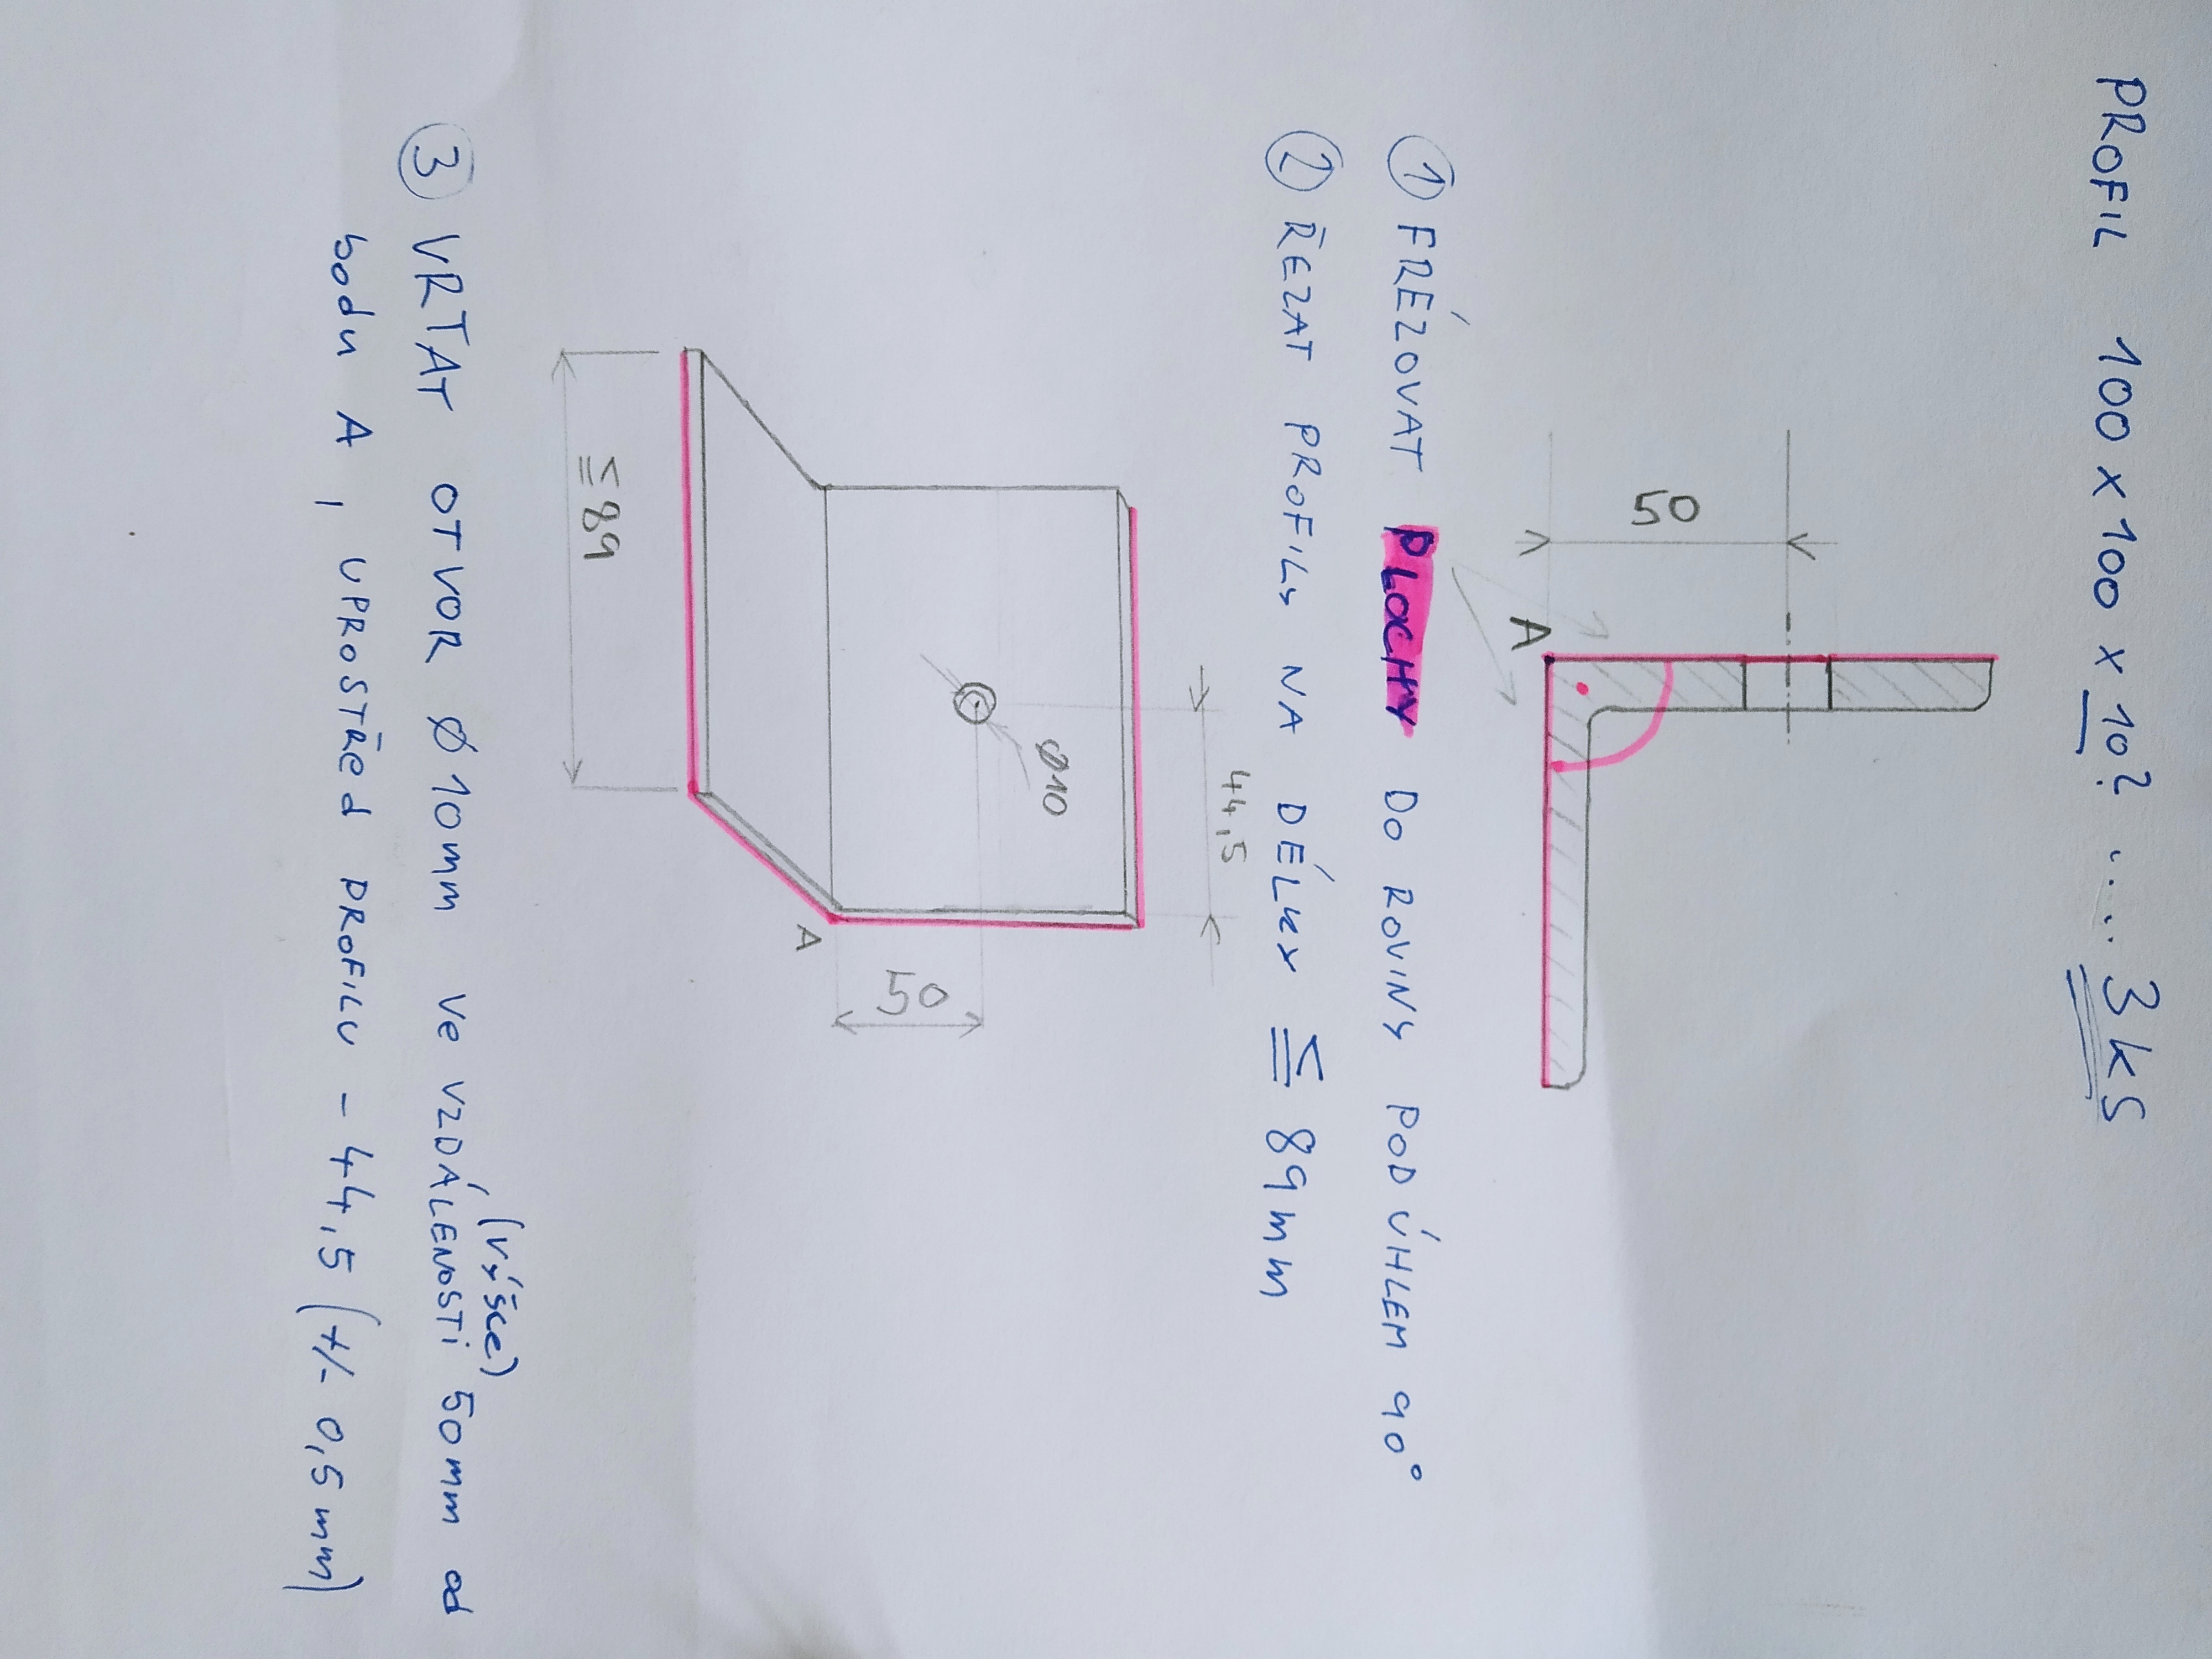 PROFIL 100 x 100 x 10? .... 3 ks
50
A
① FRÉZOVAT PLOCHY DO ROVINY POD ÚHLEM 90°
② ŘEZAT PROFILY NA DÉLKY ≦ 89 mm
44,5
Ø10
50
A
≦ 89
(výšce)
③ VRTAT OTVOR Ø 10mm VE VZDÁLENOSTI 50mm od
bodu A , UPROSTŘED PROFILU - 44,5 (+/- 0,5 mm)